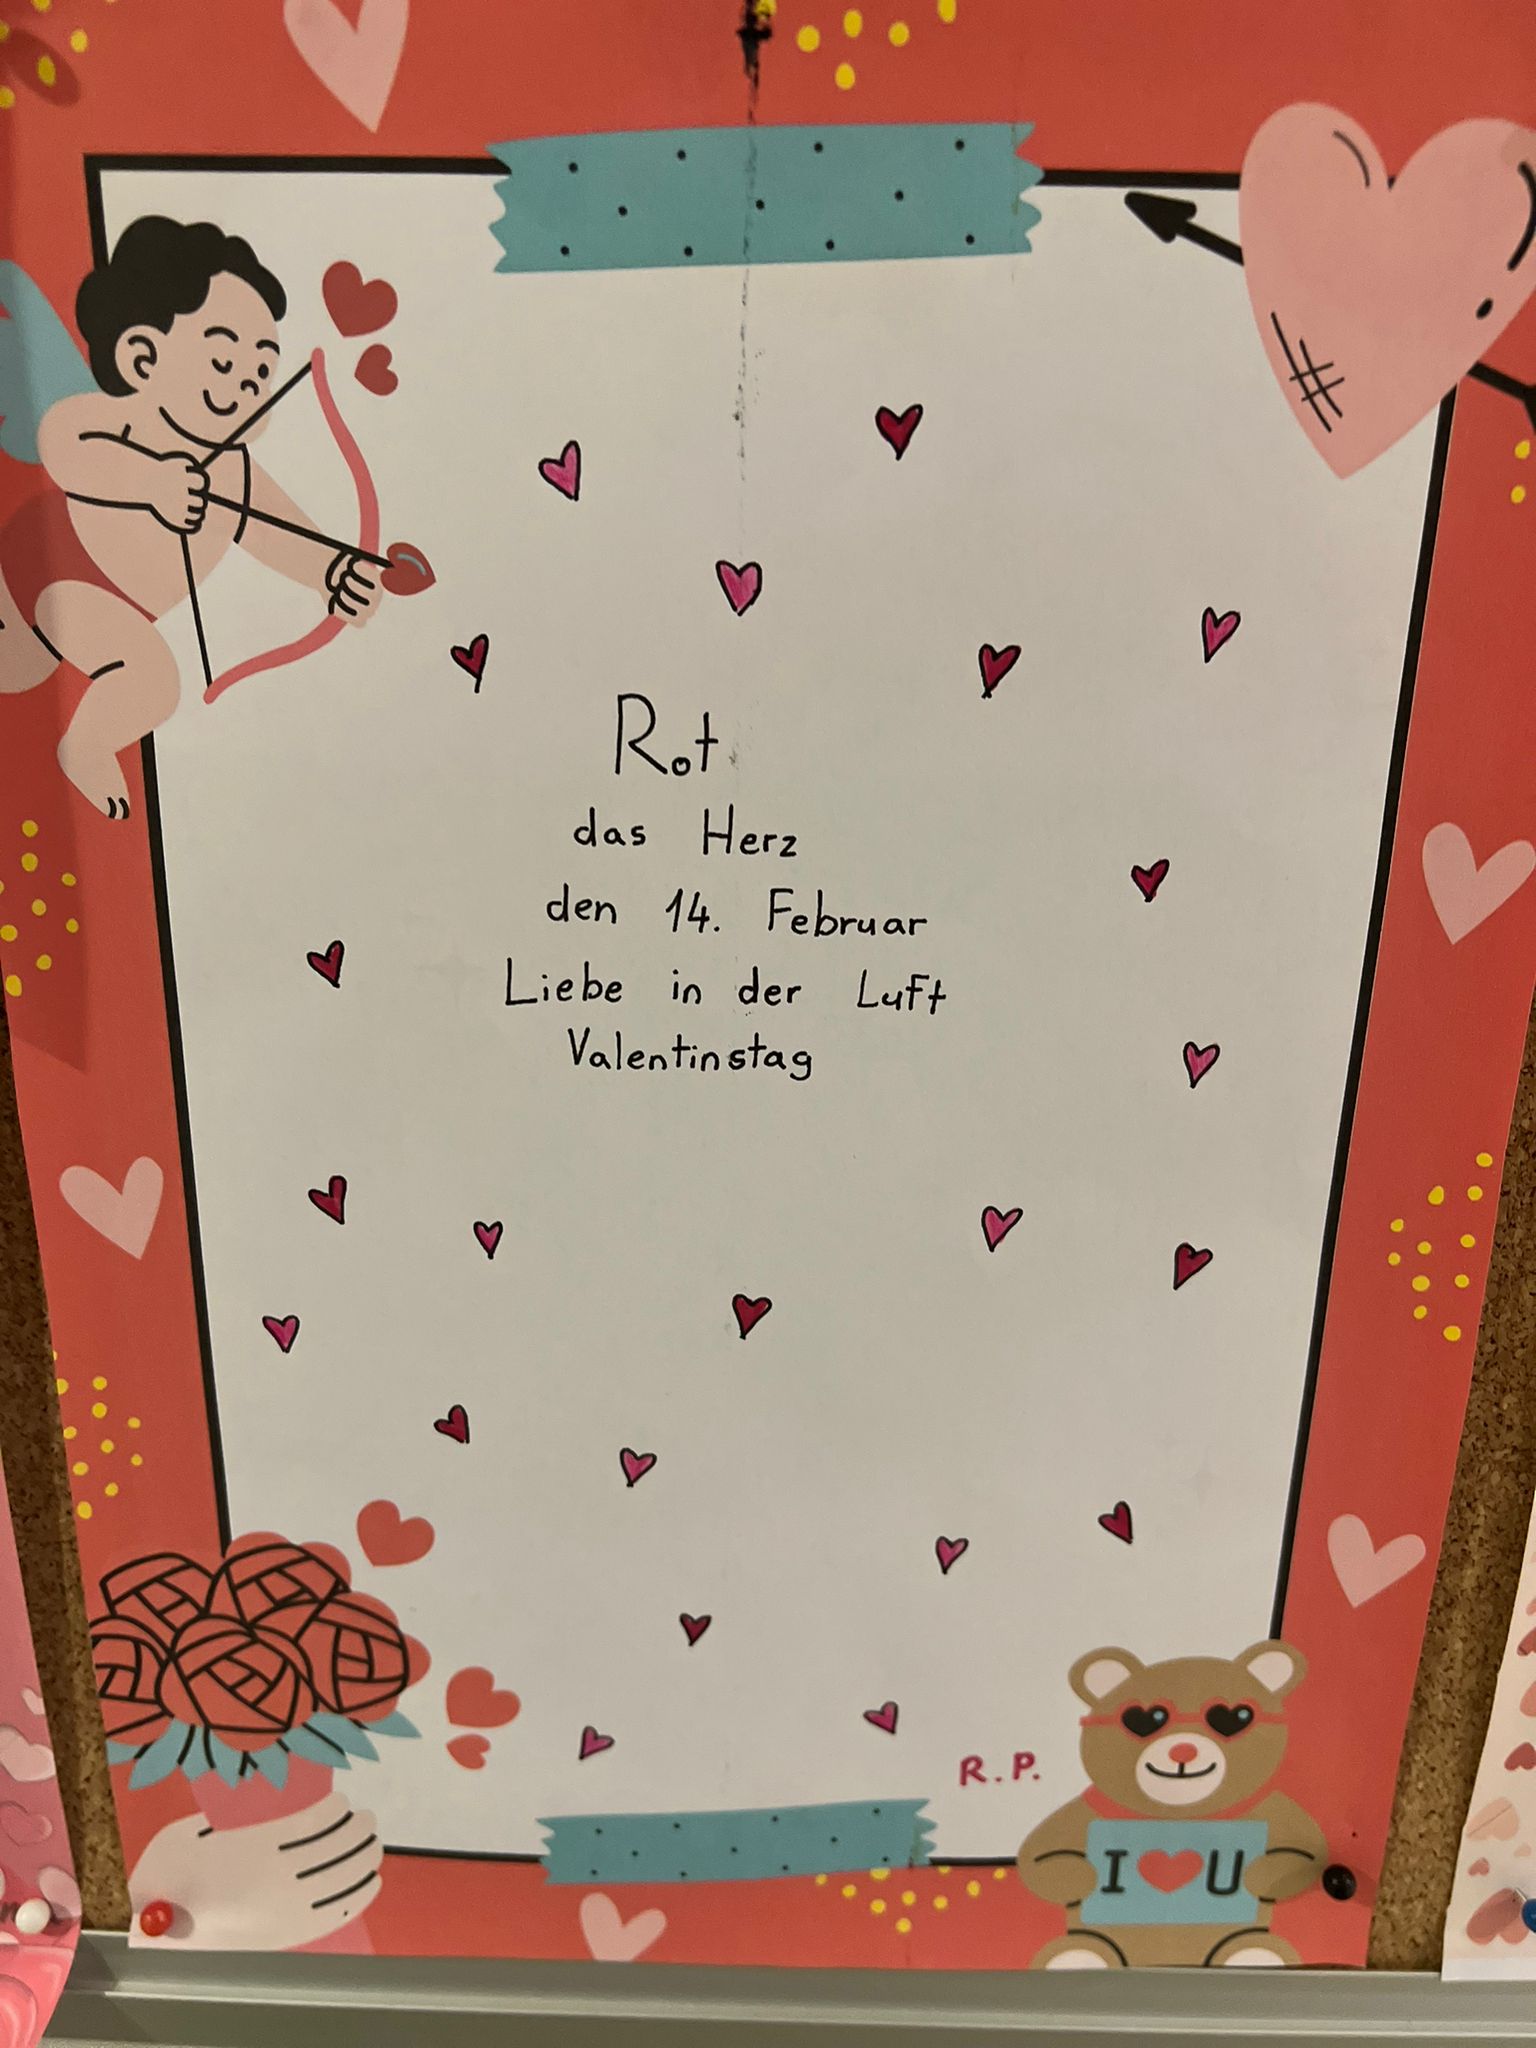 Rot
das Herz
den 14. Februar
Liebe in der Luft
Valentinstag
R.P.
I ❤ U